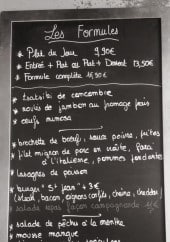 Les Formules
* Plat du Jour 9,90€
* Entrée + Plat ou Plat + Dessert 13,50€
* Formule complète 16,90€
* tzatziki de concombre
* roulés de jambon au fromage frais
* œufs mimosa
* brochette de bœuf, sauce poivre, frites
* filet mignon de porc en croûte, poêlée
à l'italienne, pommes fondantes
* lasagnes de poisson
* burger St Jean +3€
bacon, oignons confits, chèvre, cheddar
salade repas façon campagnarde
* salade de pêches à la menthe
* mousse mangue